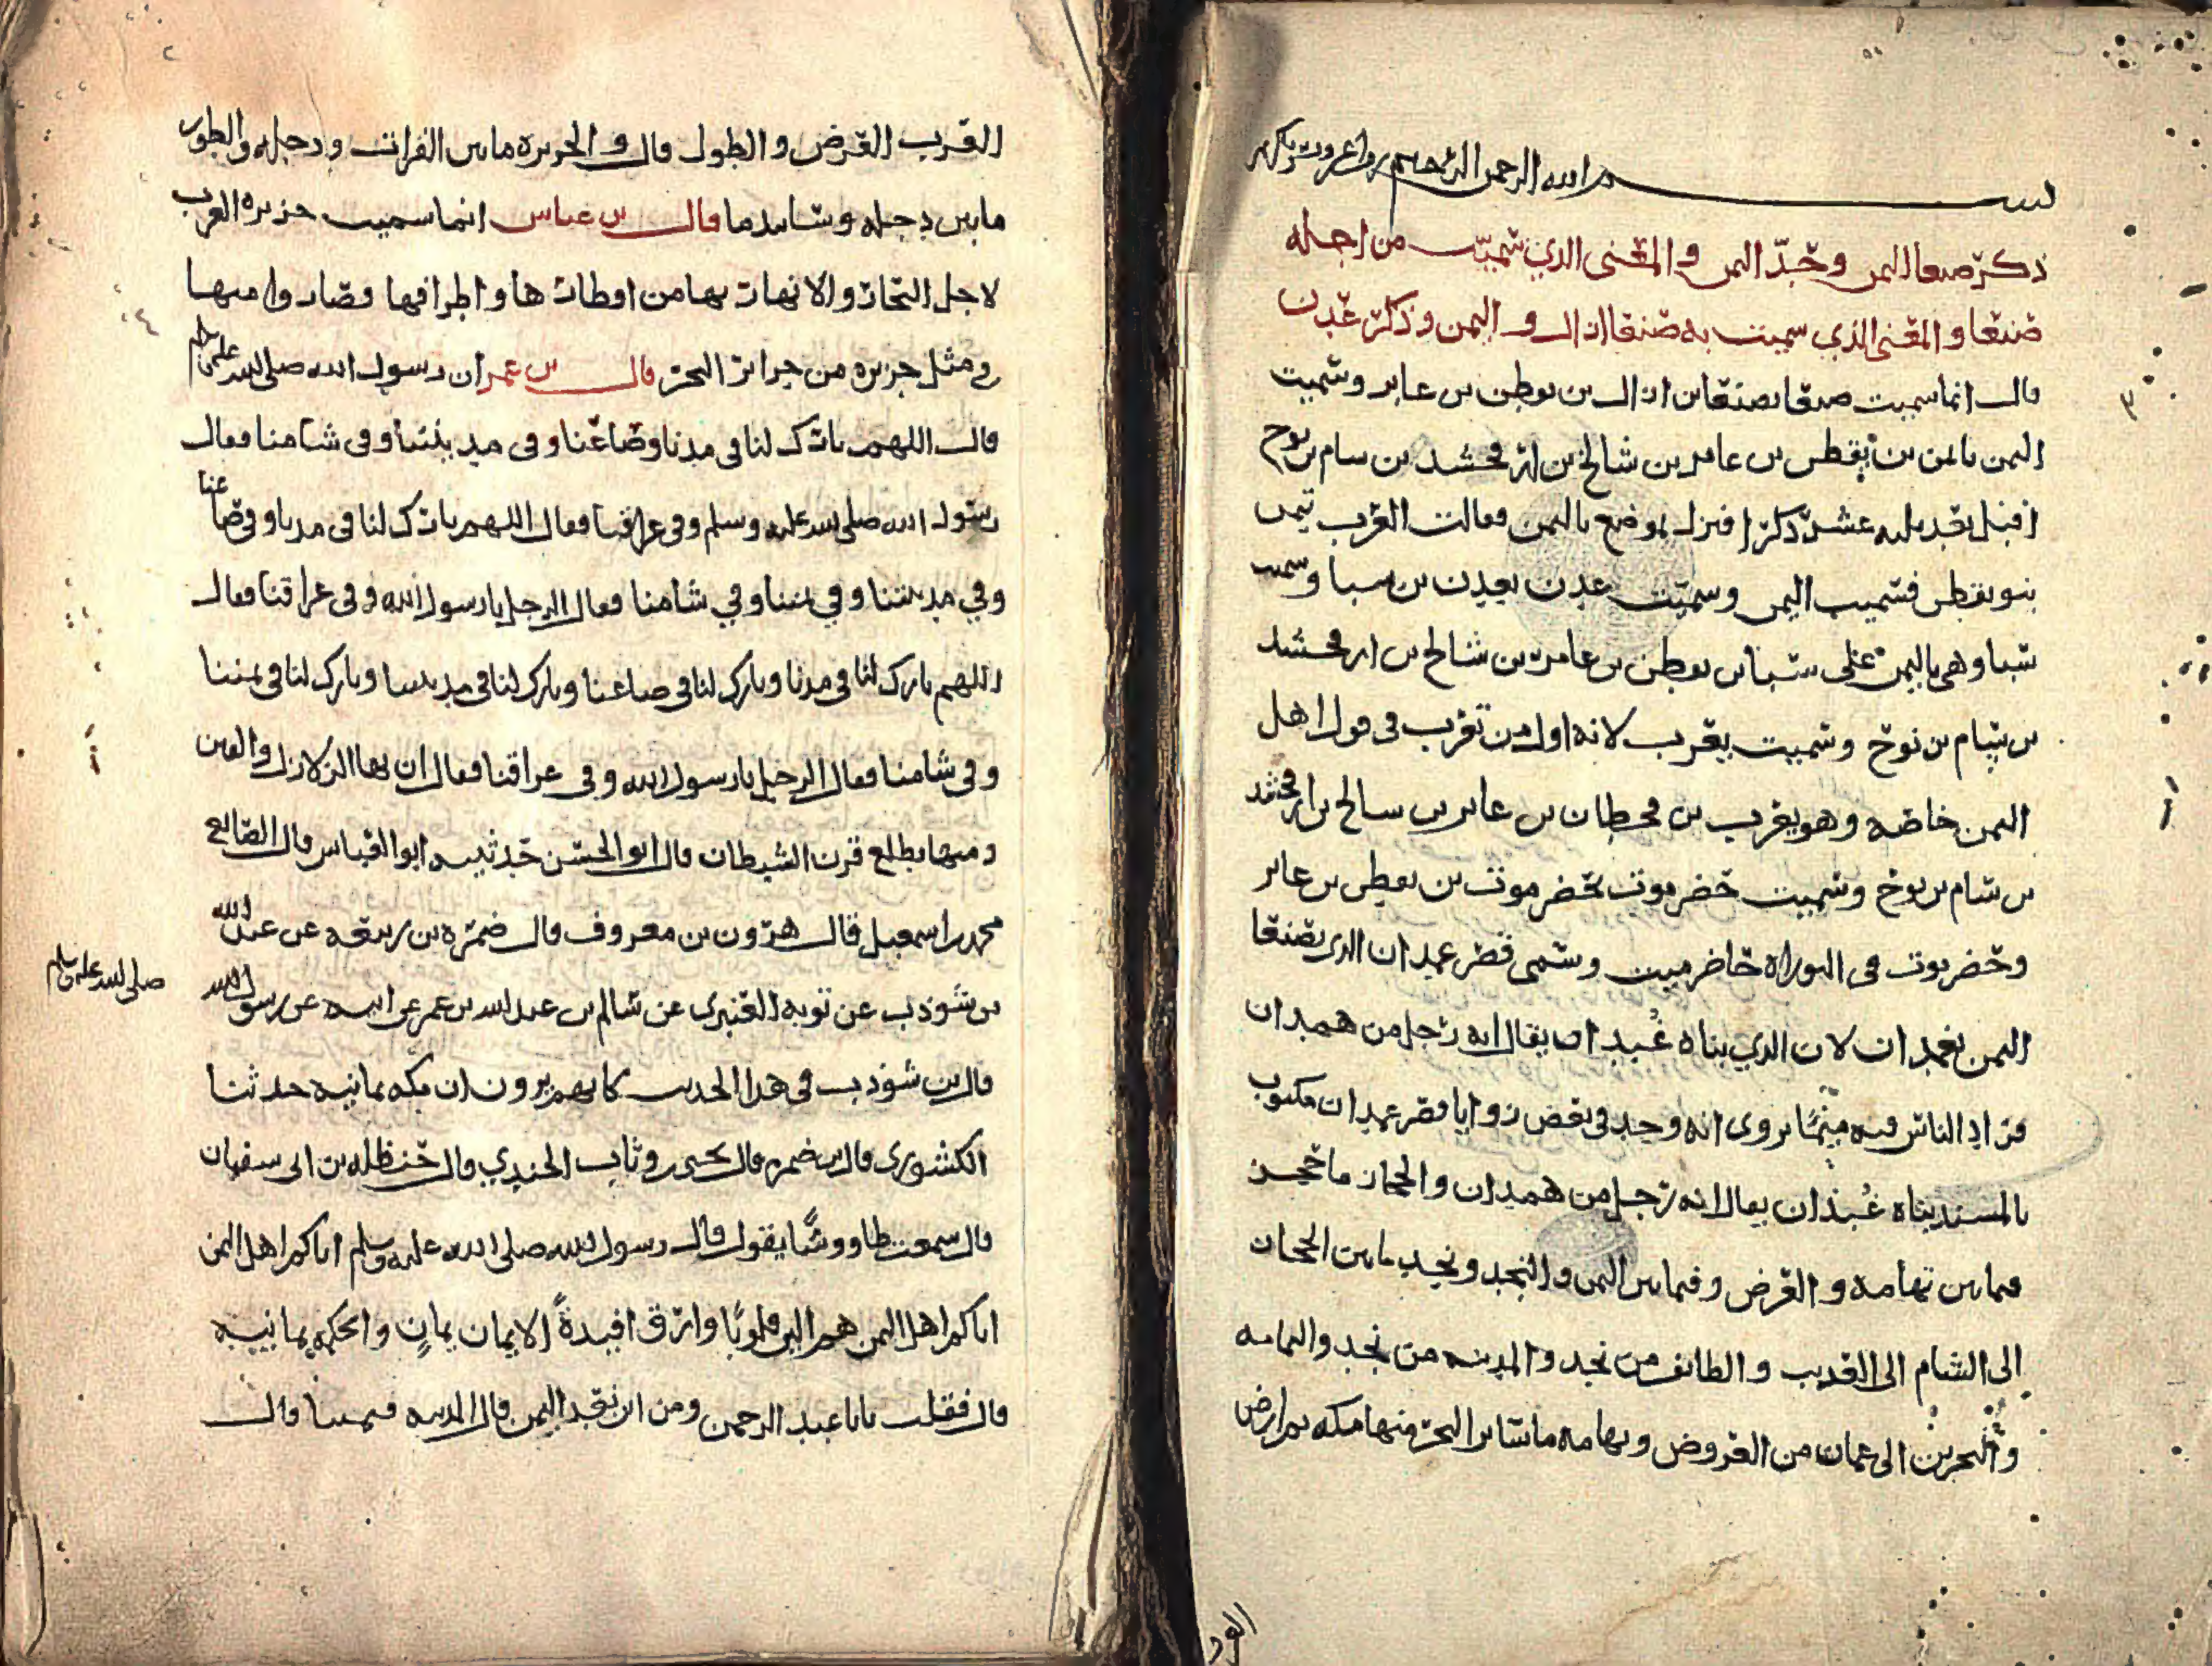 بسم الله الرحمن الرحيم
ذكر صنعا اليمن وحد اليمن والمعنى الذي سميت من اجله
صنعا والمعنى الذي سميت به صنعا ازال واليمن وذكر عدن
قال انما سميت صنعا بصنعا بن ازال بن يقطن بن عابر وسميت
اليمن بايمن بن يقطن بن عابر بن شالخ بن ارفخشد بن سام بن نوح
اقبل بعد ثلثه عشر ذكرا فنزل بموضع باليمن فقالت العرب تيمن
بنو يقطن فسميت اليمن وسميت عدن بعدن بن سبا وسميت
سبا وهي باليمن على سبا بن يقطن بن عابر بن شالخ بن ارفخشد
بن سام بن نوح وسميت يعرب لانه اول من تعرب في قول اهل
اليمن خاصه وهو يعرب بن قحطان بن عابر بن سالخ بن ارفخشد
بن سام بن نوح وسميت حضرموت بحضرموت بن يقطن بن عابر
وحضرموت في التوراه حاضر ميت وسمي قصر غمدان الذي بصنعا
اليمن بغمدان لان الذي بناه غمدان يقال انه رجل من همدان
فزاد الناس فيه ميما يروى انه وجد في بعض زوايا قصر غمدان مكتوب
بالمسند بناه غمدان يقال انه رجل من همدان والحجاز ما حجز
فيما بين تهامه والعرض وفيما بين اليمن والنجد ونجد ما بين الحجاز
الى الشام الى العذيب والطائف من نجد والمدينه من نجد واليمامه
والبحرين الى عمان من العروض وتهامه ما ساير البحر منها مكه ثم ارض
العرب العرض والطول قال والجزيره ما بين الفرات ودجله والطور
ما بين دجله وساتيدما قال بن عباس انما سميت جزيره العرب
لاجل البحار والانهار بها من اقطارها واطرافها فصاروا منها
في مثل جزيره من جزائر البحر قال بن عمر ان رسول الله صلى الله عليه وسلم
قال اللهم بارك لنا في مدنا وصاعنا وفي مدينتنا وفي شامنا فقال
رسول الله صلى الله عليه وسلم وفي عراقنا فقال اللهم بارك لنا في مدنا وفي صاعنا
وفي مدينتنا وفي يمننا وفي شامنا فقال الرجل يا رسول الله وفي عراقنا فقال
اللهم بارك لنا في مدنا وبارك لنا في صاعنا وبارك لنا في مدينتنا وبارك لنا في يمننا
وفي شامنا فقال الرجل يا رسول الله وفي عراقنا فقال ان بها الزلازل والفتن
ومنها يطلع قرن الشيطان قال ابو الحسن حدثنيه ابو العباس قال الصايع
محمد بن اسمعيل قال هرون بن معروف قال ضمره بن ربيعه عن عبد الله
بن شوذب عن توبه العنبري عن سالم بن عبد الله بن عمر عن ابيه عن رسول الله
صلى الله عليه وسلم
قال بن شوذب في هذا الحديث كانهم يرون ان مكه يمانيه حدثنا
الكشوري قال بن ضمره قال يحيى بن وثاب الجندي قال حنظله بن ابي سفيان
قال سمعت طاووسا يقول قال رسول الله صلى الله عليه وسلم اتاكم اهل اليمن
اتاكم اهل اليمن هم الين قلوبا وارق افيدة الايمان يمان والحكمه يمانيه
قال فقلت يا با عبد الرحمن ومن اين نعد اليمن قال المدينه فيمننا قال
العرب